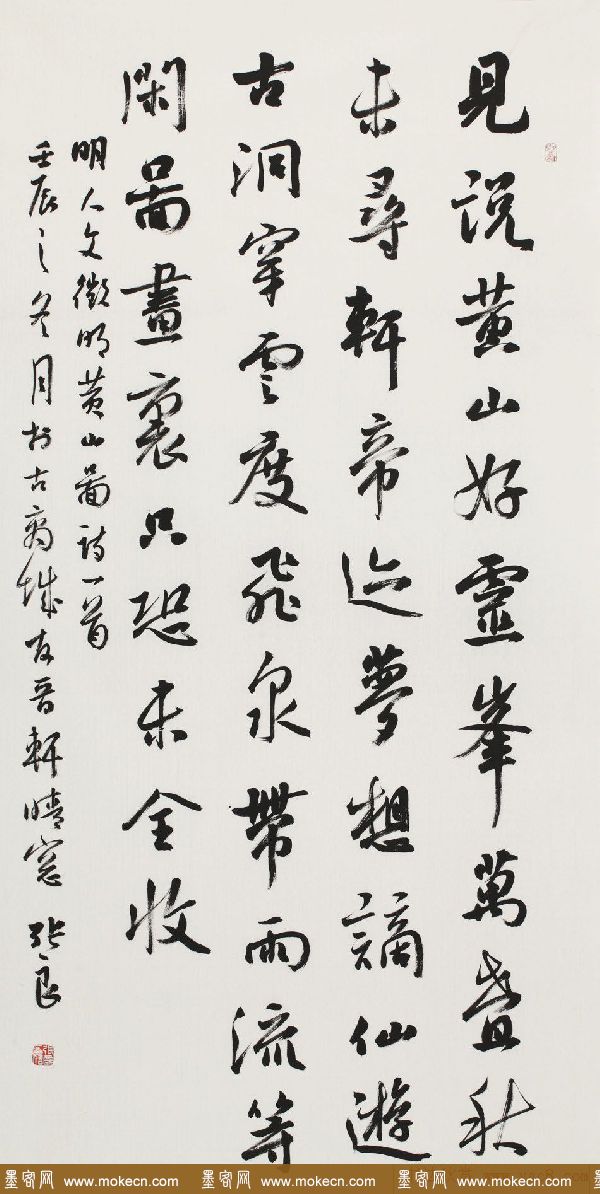 見説黄山好靈峯萬叠秋
未尋軒帝迹夢想謫仙遊
古洞穿雲度飛泉帶雨流等
閑啚畫裏只恐未全收
明人文徵明黄山啚诗一首
壬辰之冬月於古离城友晋軒晴窓 张良
墨客网 www.mokecn.com 墨客网 www.mokecn.com 墨客网 www.mokecn.com